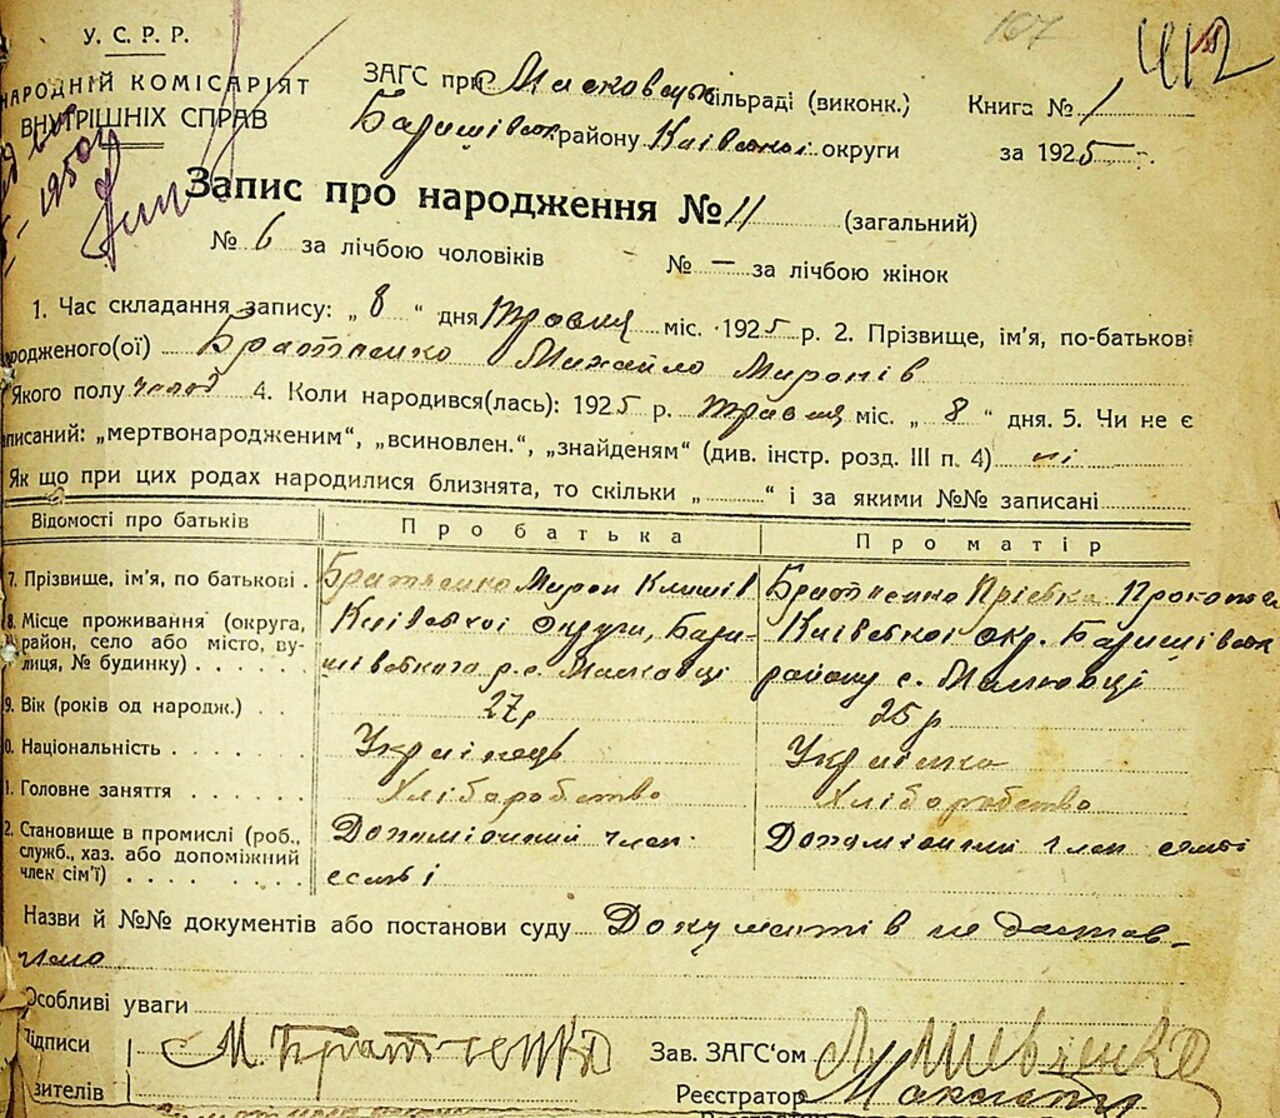 У. С. Р. Р.
167
412
НАРОДНІЙ КОМІСАРІЯТ
ВНУТРІШНІХ СПРАВ
ЗАГС при Масковецьк сільраді (виконк.) Книга № 1
Баришівськ району Київської округи за 1925 р.
Запис про народження № 11 (загальний)
№ 6 за лічбою чоловіків № — за лічбою жінок
1. Час складання запису: „ 8 “ дня травня міс. 1925 р. 2. Прізвище, ім'я, по-батькові
родженого(ої) Братченко Михайло Миронів
Якого полу чолов 4. Коли народився(лась): 1925 р. травня міс. „ 8 “ дня. 5. Чи не є
записаний: „мертвонародженим“, „всиновлен.“, „знайденям“ (див. інстр. розд. III п. 4) ні
Як що при цих родах народилися близнята, то скільки „ “ і за якими №№ записані
Відомості про батьків Про батька Про матір
7. Прізвище, ім'я, по батькові . Братченко Мирон Климів Братченко Пріська Прокопів
8. Місце проживання (округа, район, село або місто, вулиця, № будинку) Київської округи, Баришівського р. с. Масковці Київської окр. Баришівськ району с. Масковці
9. Вік (років од народж.) 27 р 25 р
0. Національність Українець Українка
1. Головне заняття Хліборобство Хліборобство
2. Становище в промислі (роб., служб., хаз. або допоміжний член сім'ї) Допоміжний член семьі Допоміжний член семьі
Назви й №№ документів або постанови суду Документів не достав-
лено
Особливі уваги
Підписи М. Братченко Зав. ЗАГС'ом Шевченко
Реєстратор